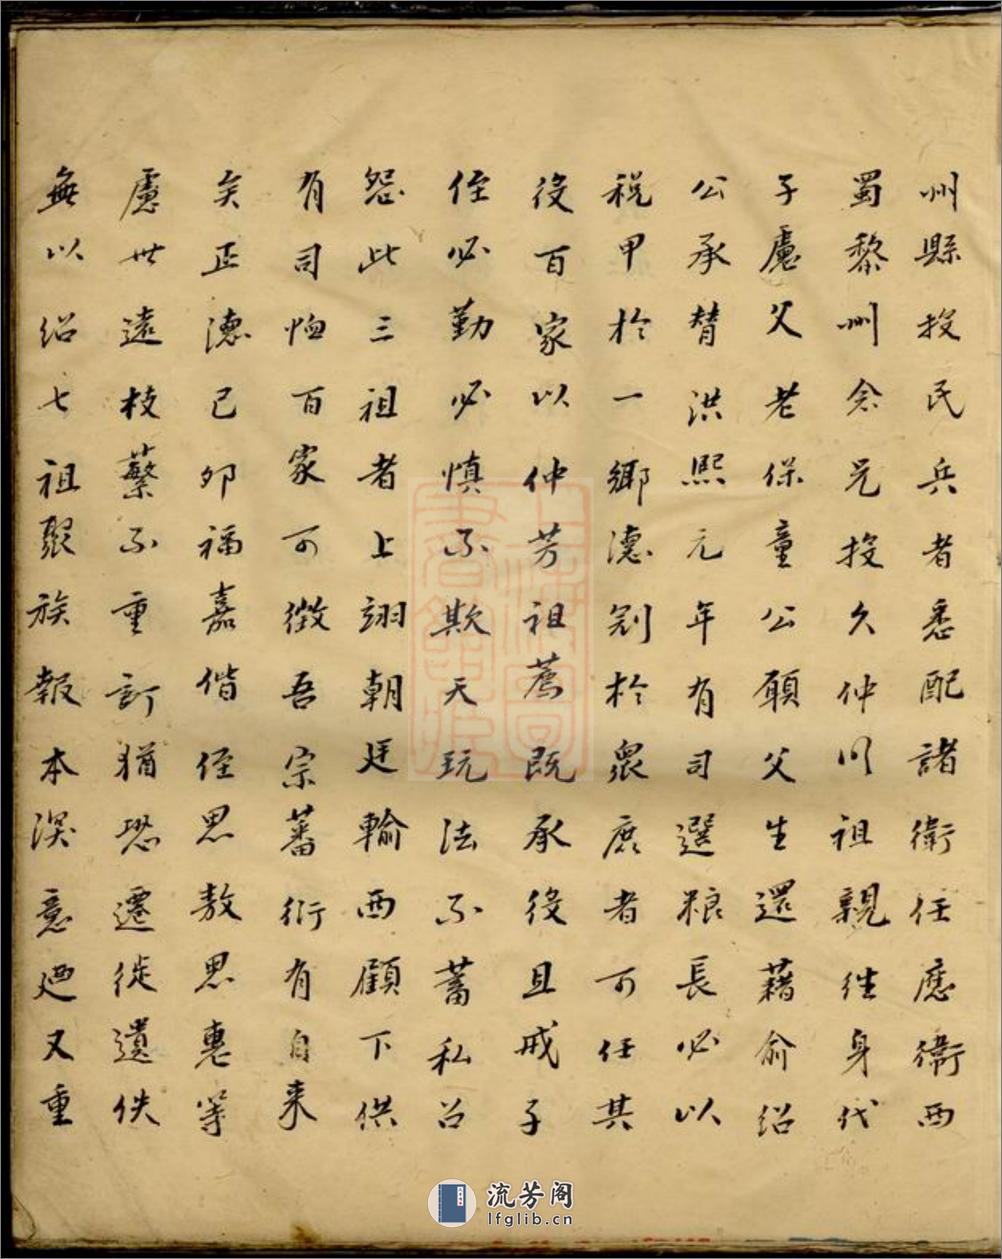 州縣投民兵者悉配諸衛任應衛西
蜀黎州念兄投久仲以祖親往身代
子處父老保童公願父生還藉俞紹
公承替洪熙元年有司選粮長必以
税甲於一鄉德冠於眾庶者可任其
役百家以仲芳祖薦既承役且戒子
侄必勤必慎不欺天玩法不蓄私召
怨此三祖者上翊朝廷輸西顧下供
有司恤百家可徴吾宗蕃衍有自来
矣正德己卯福嘉偕侄思敖思惠等
慮世遠枝蘩不重訂猶恐遷徙遺佚
無以紹七祖聚族報本深意廼又重
流芳阁
lfglib.cn